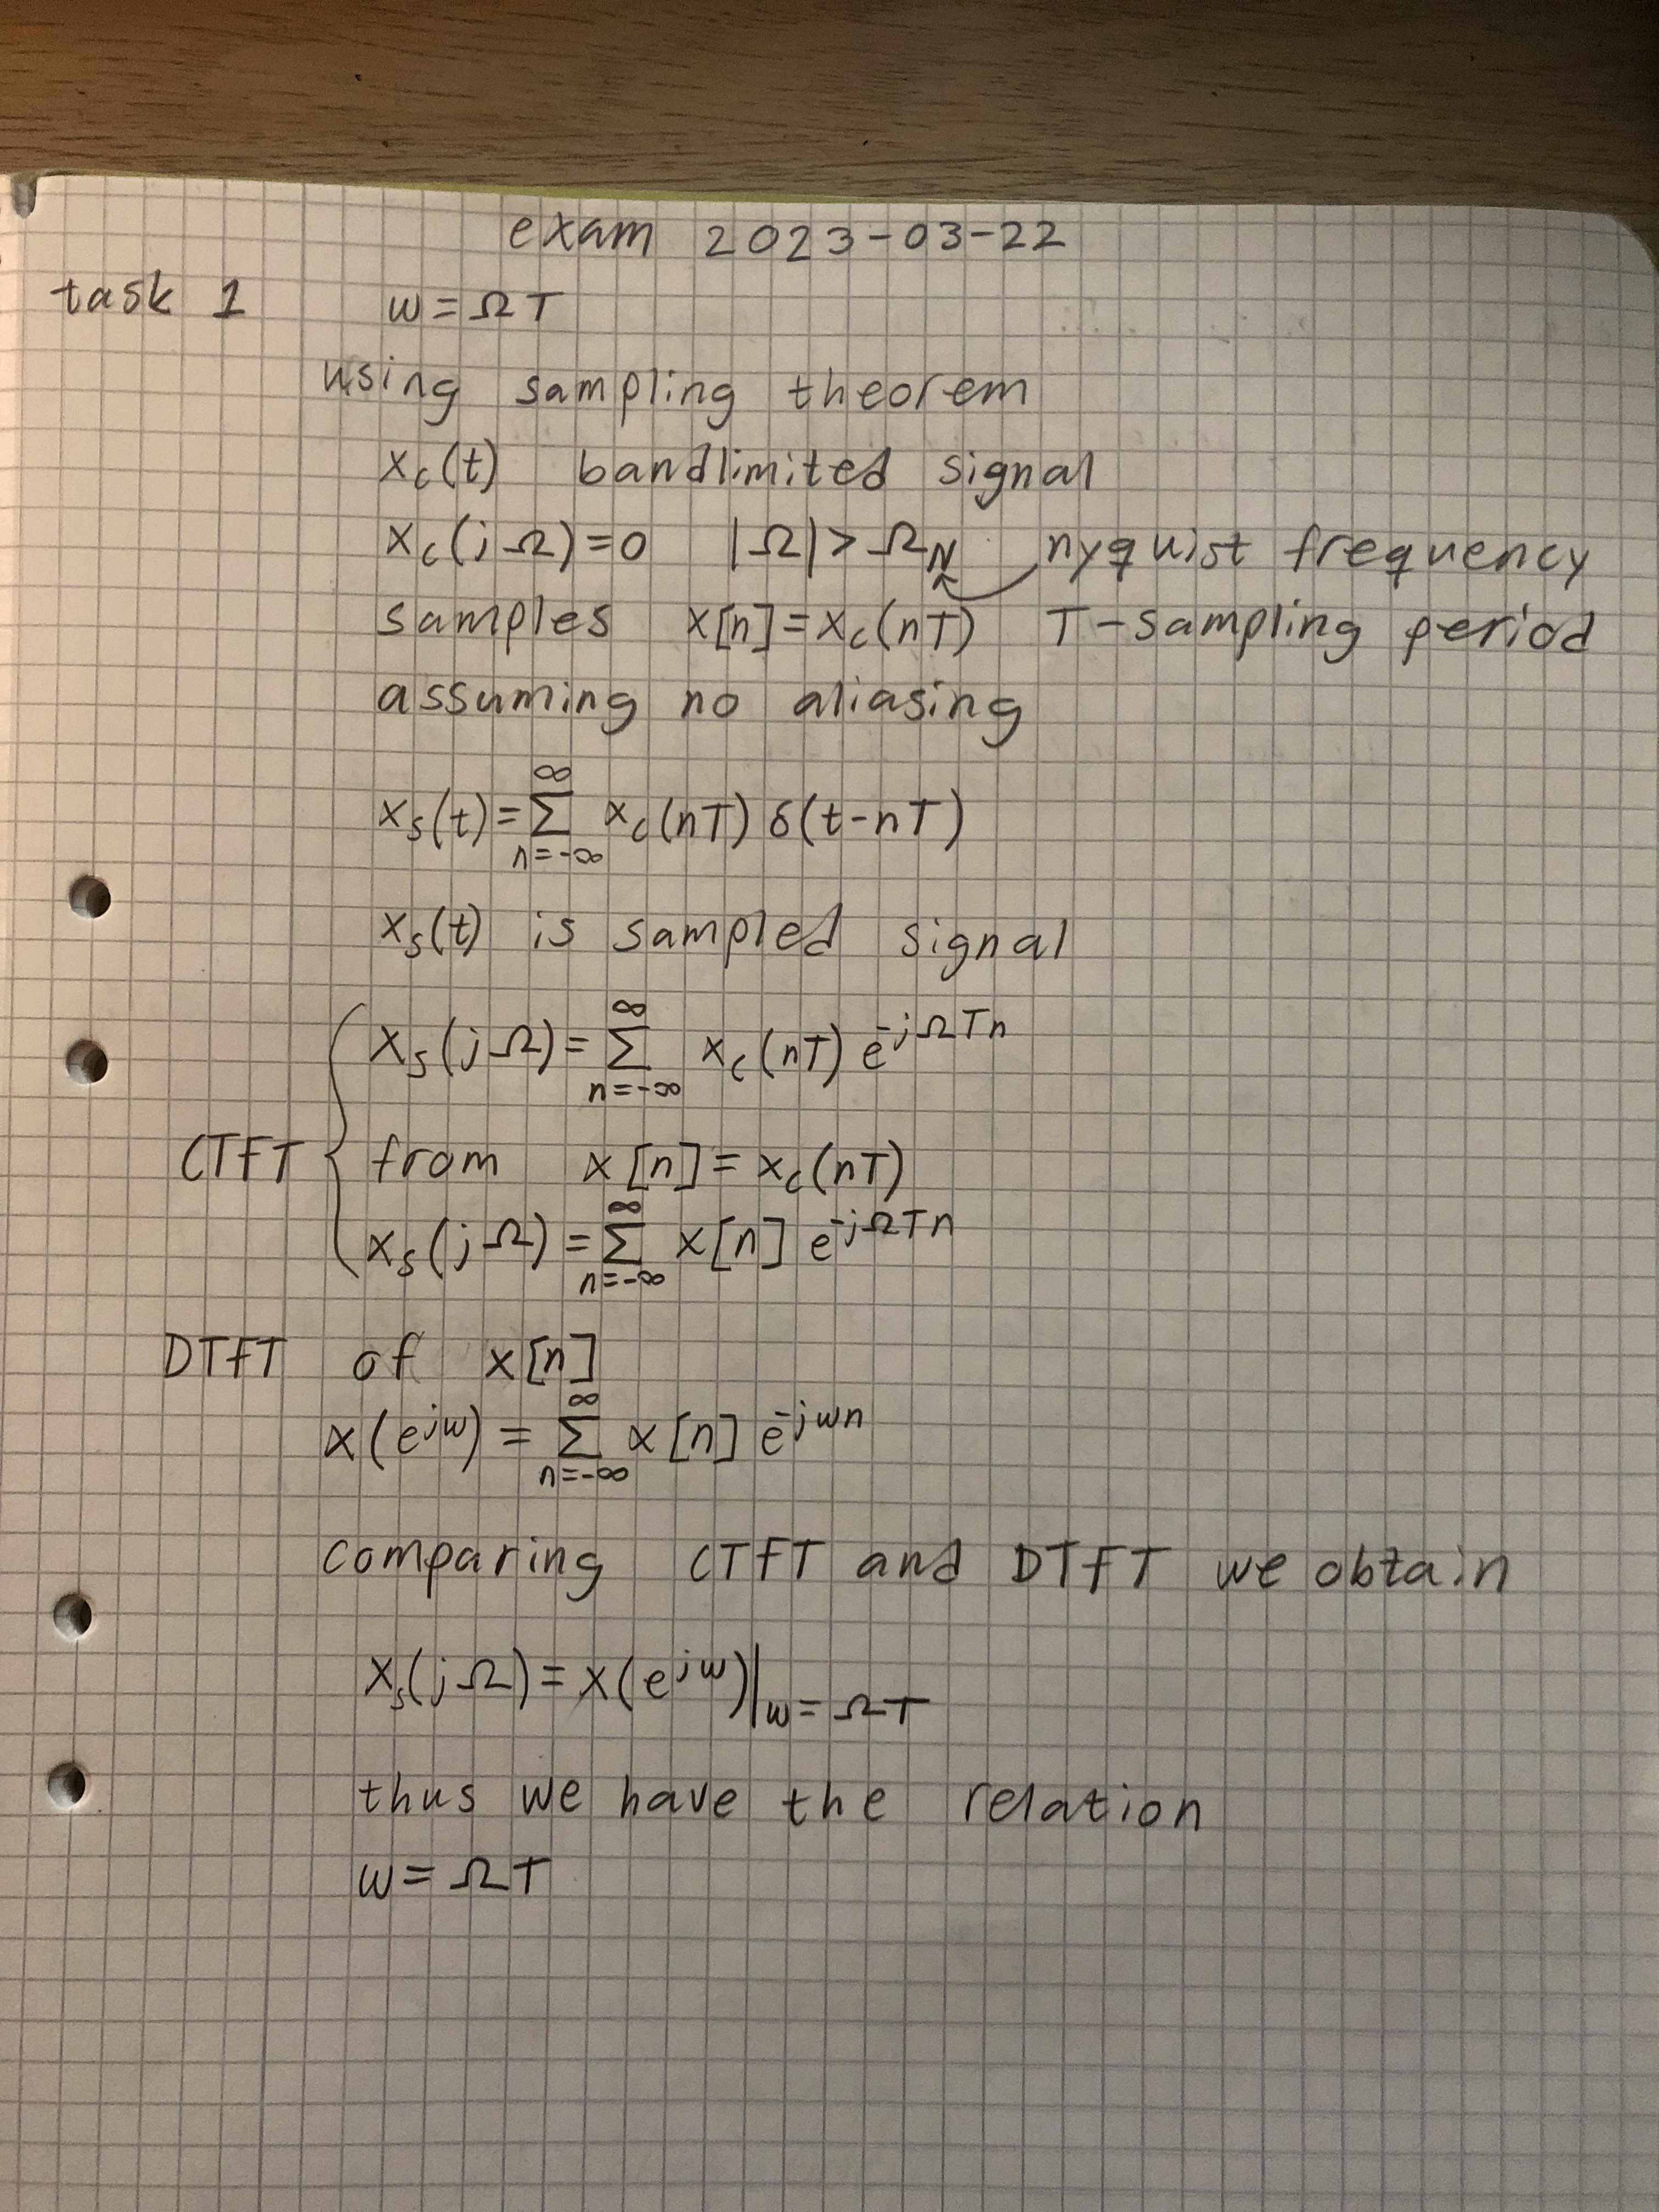 exam 2023-03-22
task 1 w = ΩT
using sampling theorem
x_c(t) bandlimited signal
x_c(jΩ)=0 |Ω| > Ω_N nyquist frequency
samples x[n] = x_c(nT) T-sampling period
assuming no aliasing
x_s(t) = ∑_{n=-∞}^{∞} x_c(nT) δ(t-nT)
x_s(t) is sampled signal
x_s(jΩ) = ∑_{n=-∞}^{∞} x_c(nT) e^{-jΩTn}
CTFT { from x[n] = x_c(nT)
x_s(jΩ) = ∑_{n=-∞}^{∞} x[n] e^{-jΩTn}
DTFT of x[n]
x(e^{jw}) = ∑_{n=-∞}^{∞} x[n] e^{-jwn}
comparing CTFT and DTFT we obtain
x_s(jΩ) = x(e^{jw})|_{w=ΩT}
thus we have the relation
w = ΩT